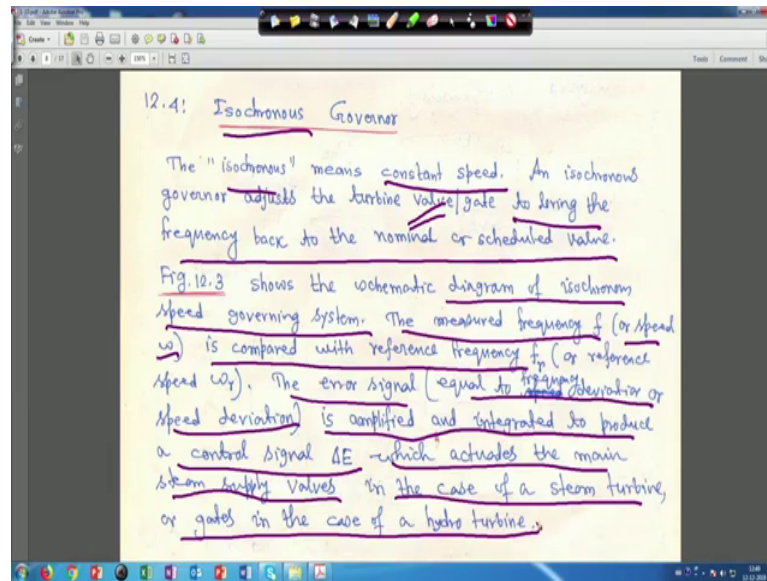 File Edit View Window Help
Create
Tools Comment
12.4: Isochronous Governor
The "isochronous" means constant speed. An isochronous
governor adjusts the turbine value/gate to bring the
frequency back to the nominal or scheduled value.
Fig.12.3 shows the schematic diagram of isochronous
speed governing system. The measured frequency f (or speed
ω) is compared with reference frequency fr (or reference
speed ωr). The error signal (equal to frequency deviation or
speed deviation) is amplified and integrated to produce
a control signal ΔE which actuates the main
steam supply valves in the case of a steam turbine,
or gates in the case of a hydro turbine.